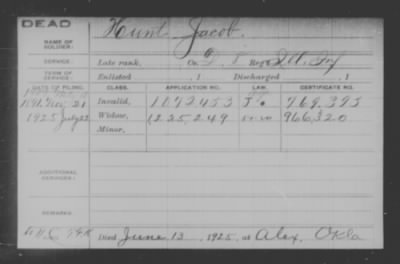 DEAD
NAME OF SOLDIER: Hunt Jacob.
SERVICE: Late rank, Co. Reg't Inf
TERM OF SERVICE: Enlisted , 1 Discharged , 1
DATE OF FILING. CLASS. APPLICATION NO. LAW. CERTIFICATE NO.
1891 Nov 21 Invalid, 1072453 769,395
1925 July 22 Widow, 1235,249 966,320
Minor,
ADDITIONAL SERVICES:
REMARKS:
Died June 13, 1925, at Alex, Okla